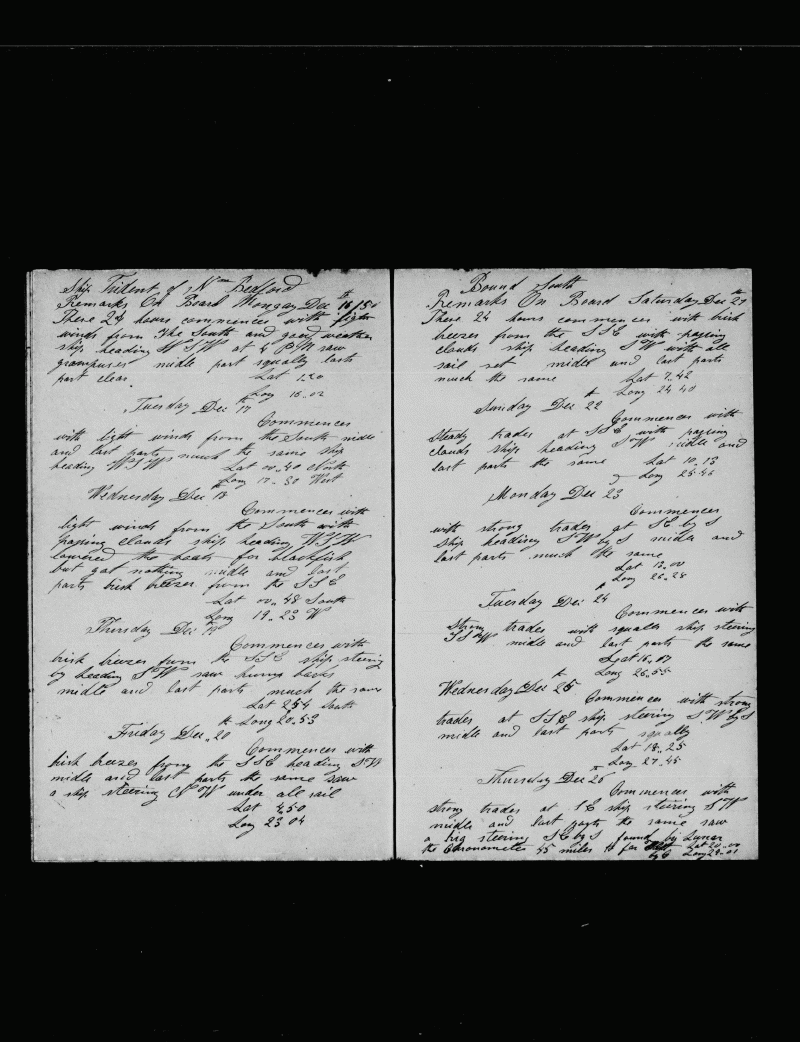 Ship Trident of New Bedford
Remarks On Board Monday Dec 16th 1850
These 24 hours commences with light
winds from the South and good weather
ship heading WSW at 4 PM saw
grampuses midle part squally lasts
part clear Lat 1.20
Long 16.02
Tuesday Dec 17th
Commences
with light winds from the South midle
and last parts much the same ship
heading WSW Lat 00.40 North
Long 17.30 West
Wednesday Dec 18
Commences with
light winds from the South with
passing clouds ship heading WSW
lowered the boats for blackfish
but got nothing midle and last
parts brisk breezes from the SSE
Lat 00.48 South
Long 19.23 W
Thursday Dec 19
Commences with
brisk breezes from the SSE ship steering
by heading SW saw hump backs
midle and last parts much the same
Lat 2.54 South
Long 20.53
Friday Dec 20th
Commences with
brisk breezes from the SSE heading SW
midle and last parts the same saw
a ship steering NW under all sail
Lat 4.50
Long 23 04
Bound South
Remarks On Board Saturday Dec 21th
These 24 hours commences with brisk
breezes from the SSE with passing
clouds ship heading SW with all
sail set midle and last parts
much the same Lat 7.42
Long 24 40
Sunday Dec 22th
Commences with
Steady trades at SSE with passing
clouds ship heading SW midle and
last parts the same Lat 10.13
Long 25.46
Monday Dec 23
Commences
with strong trades at SE by S
Ship heading SW by S midle and
last parts much the same
Lat 13.00
Long 26.28
Tuesday Dec 24th
Commences with
Strong trades with squalls ship steering
SSW midle and last parts the same
Lat 16.07
Long 26.55
Wednesday Dec 25th
Commences with strong
trades at SSE ship steering S.W by S
midle and last parts squally
Lat 18.25
Long 27.45
Thursday Dec 26th
Commences with
strong trades at SE ship steering SW
midle and last parts the same saw
a brig steering SE by S found by Lunar
the Chronometer 45 miles to far Lat 20.00
Long 29.01